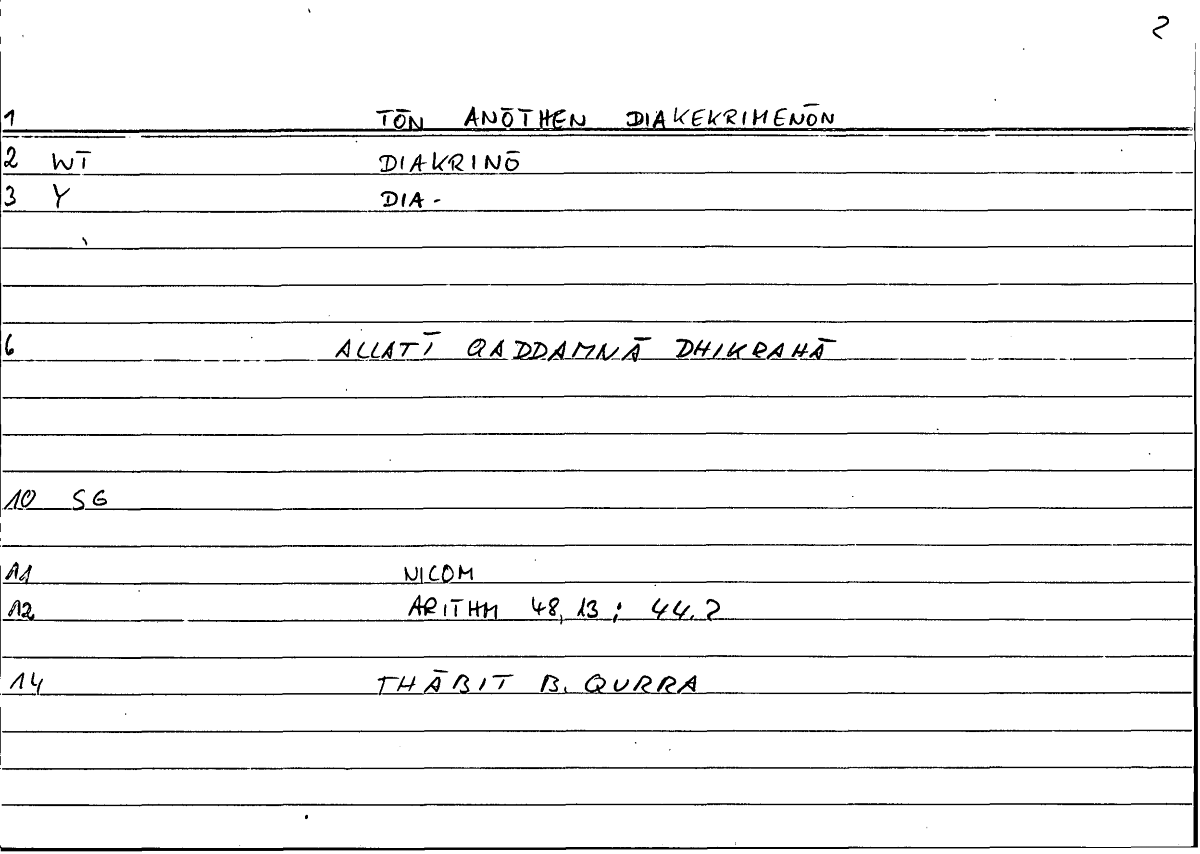 2
1 TŌN ANŌTHEN DIAKEKRIMENŌN
2 WT̄ DIAKRINŌ
3 Y DIA-
6 ALLATĪ QADDAMNĀ DHIKRAHĀ
10 SG
11 NICOM
12 ARITHM 48,13; 44.2
14 THĀBIT B. QURRA